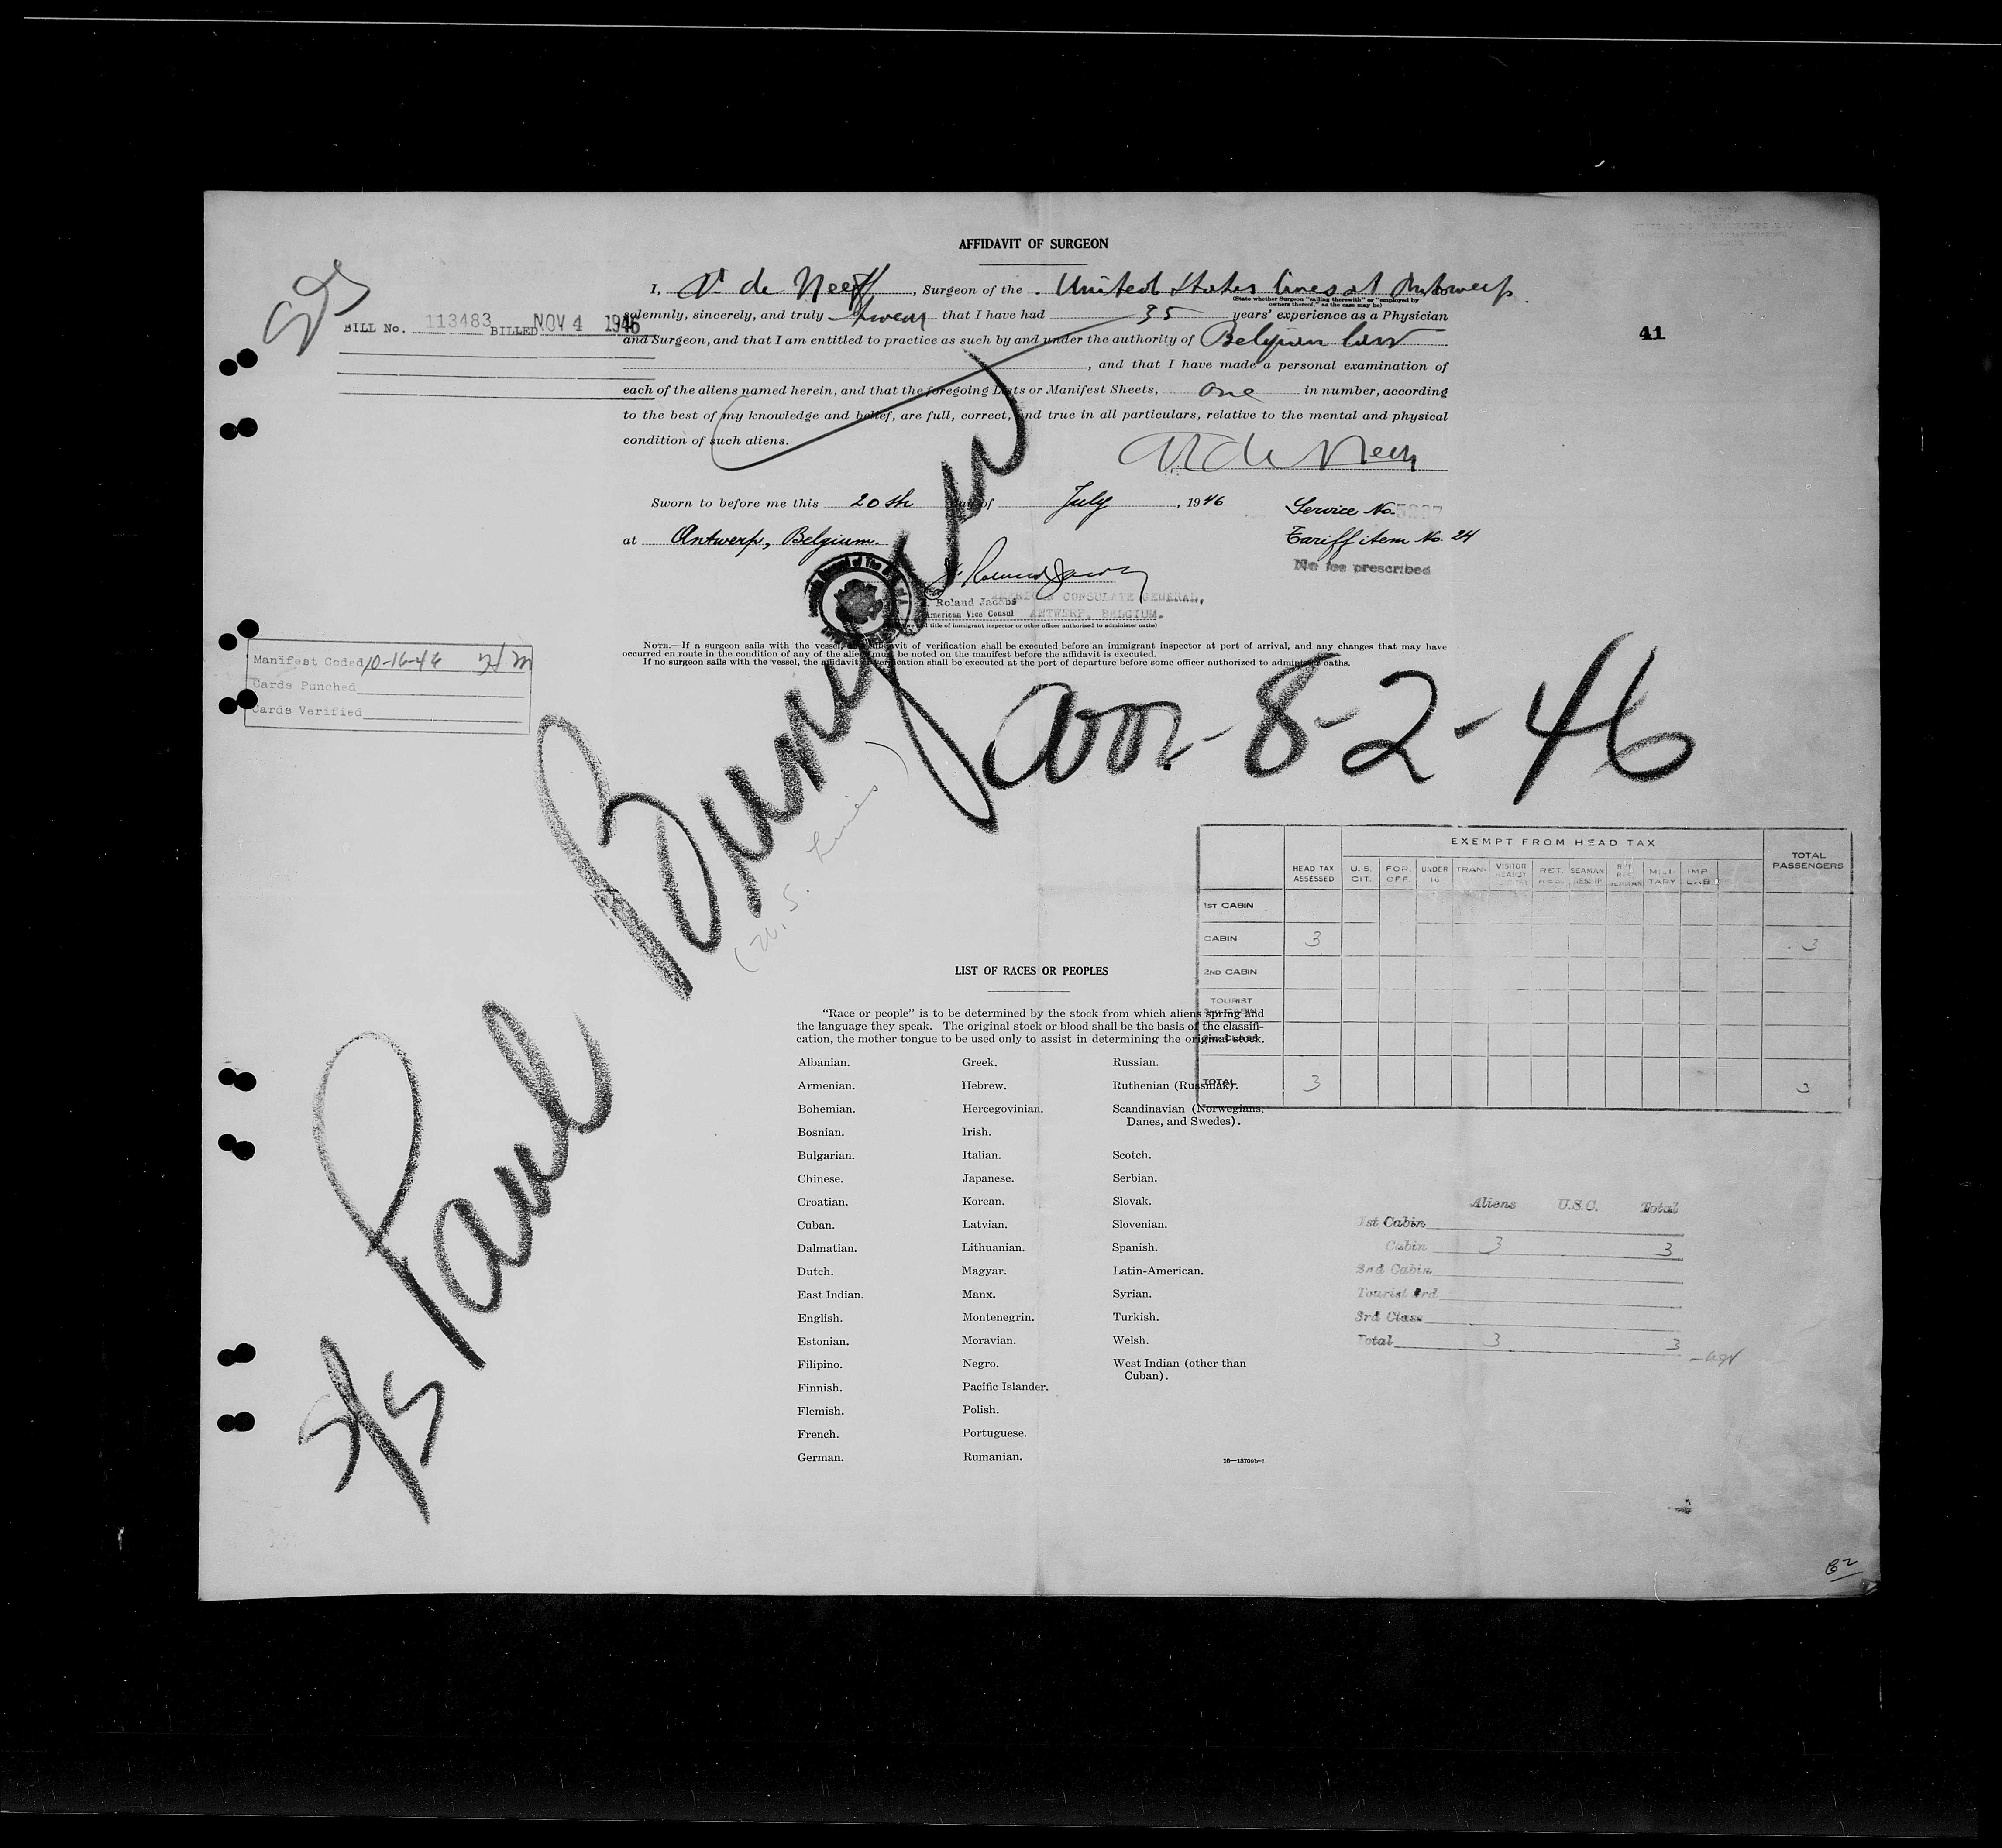 AFFIDAVIT OF SURGEON
I, V. de Neeff, Surgeon of the United States Lines at Antwerp.
(State whether Surgeon "sailing therewith" or "employed by
owners thereof," as the case may be)
BILL No. 113483 BILLED NOV 4 1946
solemnly, sincerely, and truly swear that I have had 35 years' experience as a Physician
and Surgeon, and that I am entitled to practice as such by and under the authority of Belgian law
41
, and that I have made a personal examination of
each of the aliens named herein, and that the foregoing Lists or Manifest Sheets, one in number, according
to the best of my knowledge and belief, are full, correct, and true in all particulars, relative to the mental and physical
condition of such aliens.
Sworn to before me this 20th day of July, 1946
Service No.
at Antwerp, Belgium.
Tariff item No. 24
No fee prescribed
Roland Jacobs
AMERICAN CONSULATE GENERAL,
American Vice Consul
ANTWERP, BELGIUM.
title of immigrant inspector or other officer authorized to administer oaths)
NOTE.—If a surgeon sails with the vessel, affidavit of verification shall be executed before an immigrant inspector at port of arrival, and any changes that may have
occurred en route in the condition of any of the aliens must be noted on the manifest before the affidavit is executed.
If no surgeon sails with the vessel, the affidavit of verification shall be executed at the port of departure before some officer authorized to administer oaths.
Manifest Coded 10-16-46
Cards Punched
Cards Verified
S/S Paul
8-2-46
(U.S. Lines)
EXEMPT FROM HEAD TAX
HEAD TAX ASSESSED
U.S. CIT.
FOR. OFF.
UNDER 16
TRAN-
VISITOR
RET.
SEAMAN
MILI-TARY
IMP. LAB.
TOTAL PASSENGERS
1ST CABIN
CABIN 3 3
2ND CABIN
TOURIST
TOTAL 3 3
LIST OF RACES OR PEOPLES
"Race or people" is to be determined by the stock from which aliens spring and
the language they speak. The original stock or blood shall be the basis of the classifi-
cation, the mother tongue to be used only to assist in determining the original stock.
Albanian.
Armenian.
Bohemian.
Bosnian.
Bulgarian.
Chinese.
Croatian.
Cuban.
Dalmatian.
Dutch.
East Indian.
English.
Estonian.
Filipino.
Finnish.
Flemish.
French.
German.
Greek.
Hebrew.
Hercegovinian.
Irish.
Italian.
Japanese.
Korean.
Latvian.
Lithuanian.
Magyar.
Manx.
Montenegrin.
Moravian.
Negro.
Pacific Islander.
Polish.
Portuguese.
Rumanian.
Russian.
Ruthenian (Russniak).
Scandinavian (Norwegians,
Danes, and Swedes).
Scotch.
Serbian.
Slovak.
Slovenian.
Spanish.
Latin-American.
Syrian.
Turkish.
Welsh.
West Indian (other than
Cuban).
Aliens U.S.C. Total
1st Cabin
Cabin 3 3
2nd Cabin
Tourist 3rd
3rd Class
Total 3 3